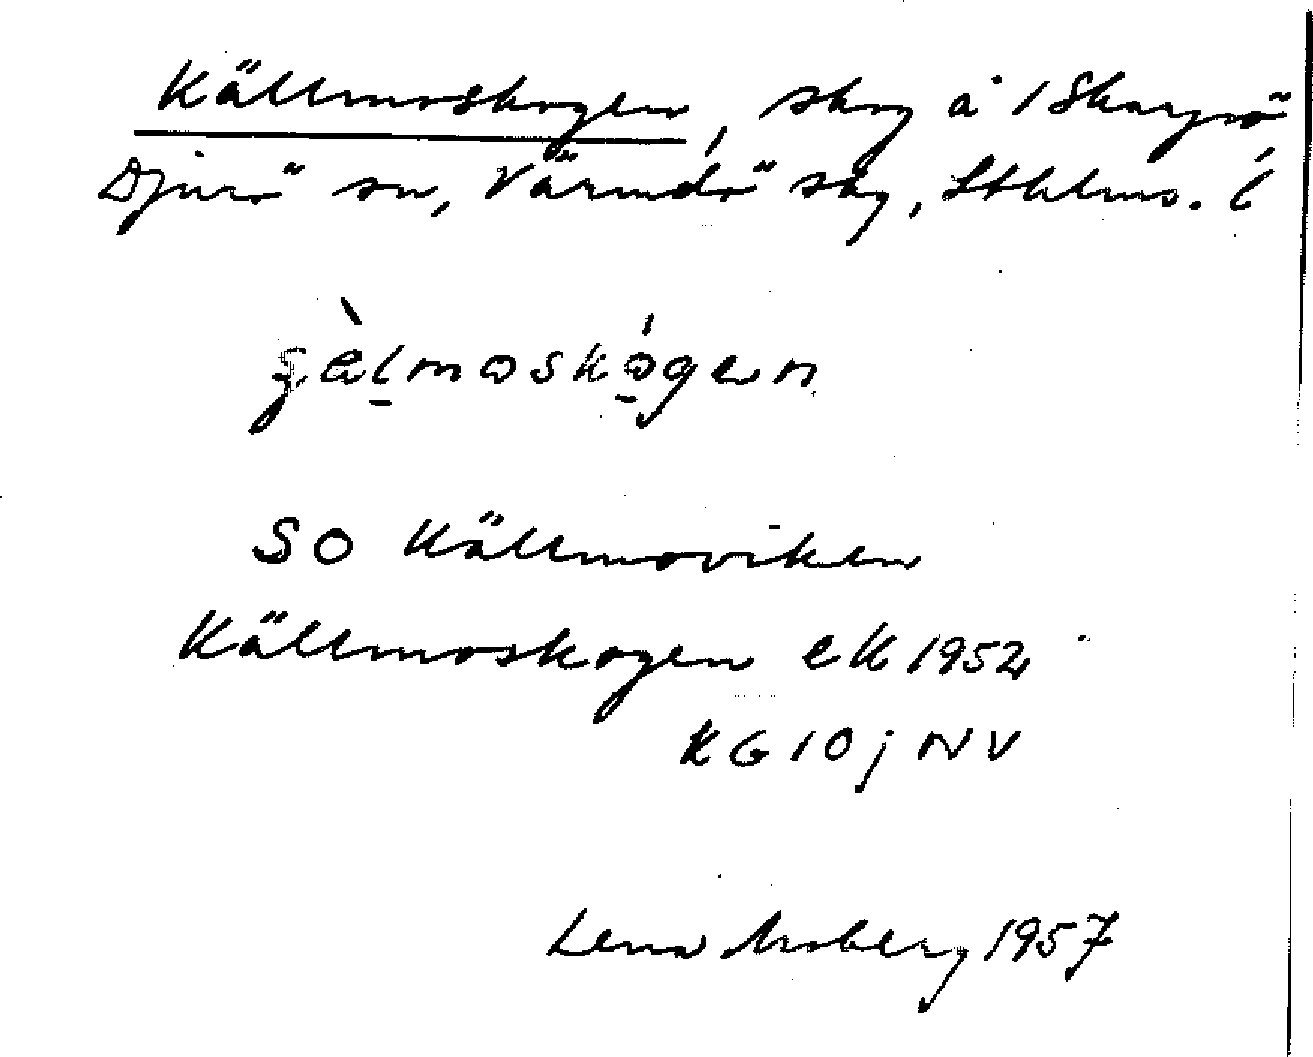 Källmoskogen, skog å /Skarpö,
Djurö sn, Värmdö skg, Sthlms. l
SO Källmoviken
Källmoskogen ek 1952
KG 10j NV
Lena Moberg 1957